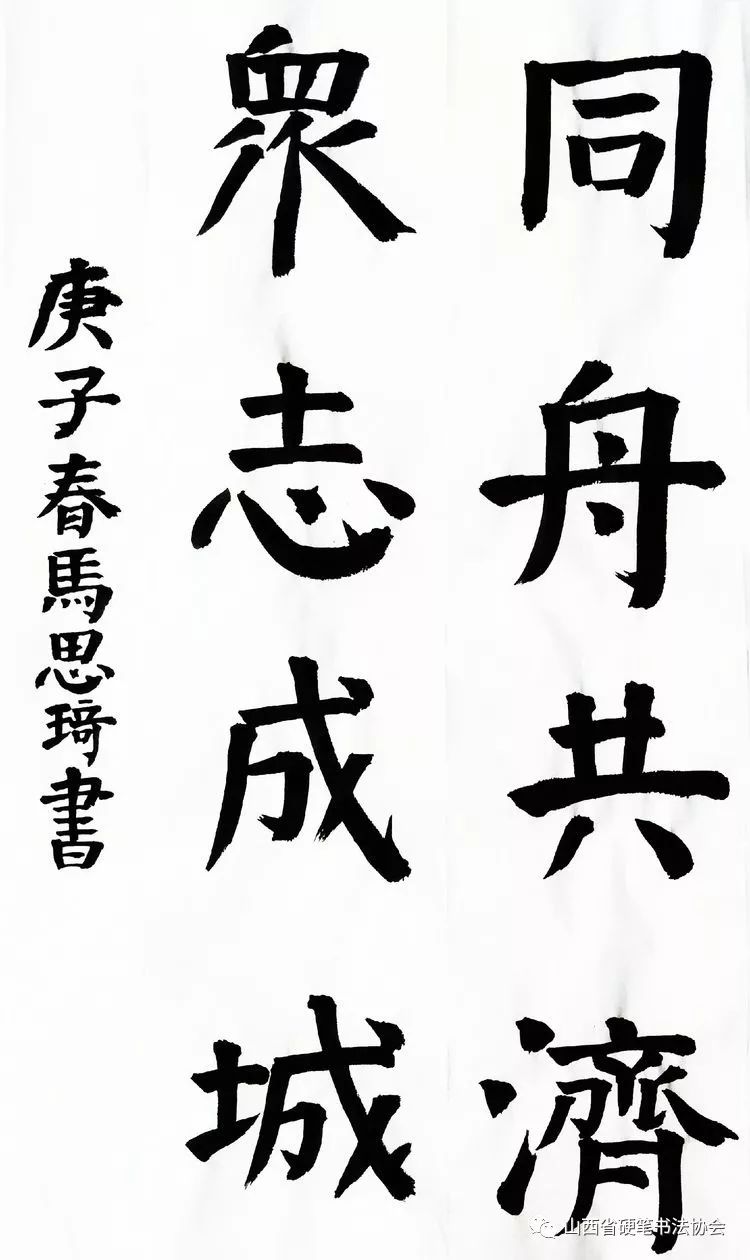 同舟共濟
衆志成城
庚子春馬思琦書
山西省硬笔书法协会